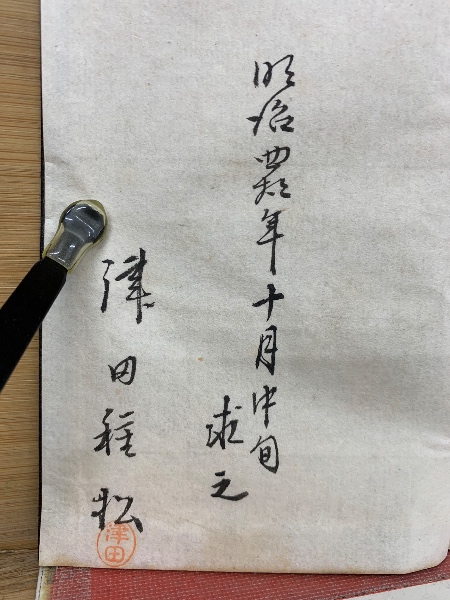 明治四拾年十月中旬
求之
津田種松
津田